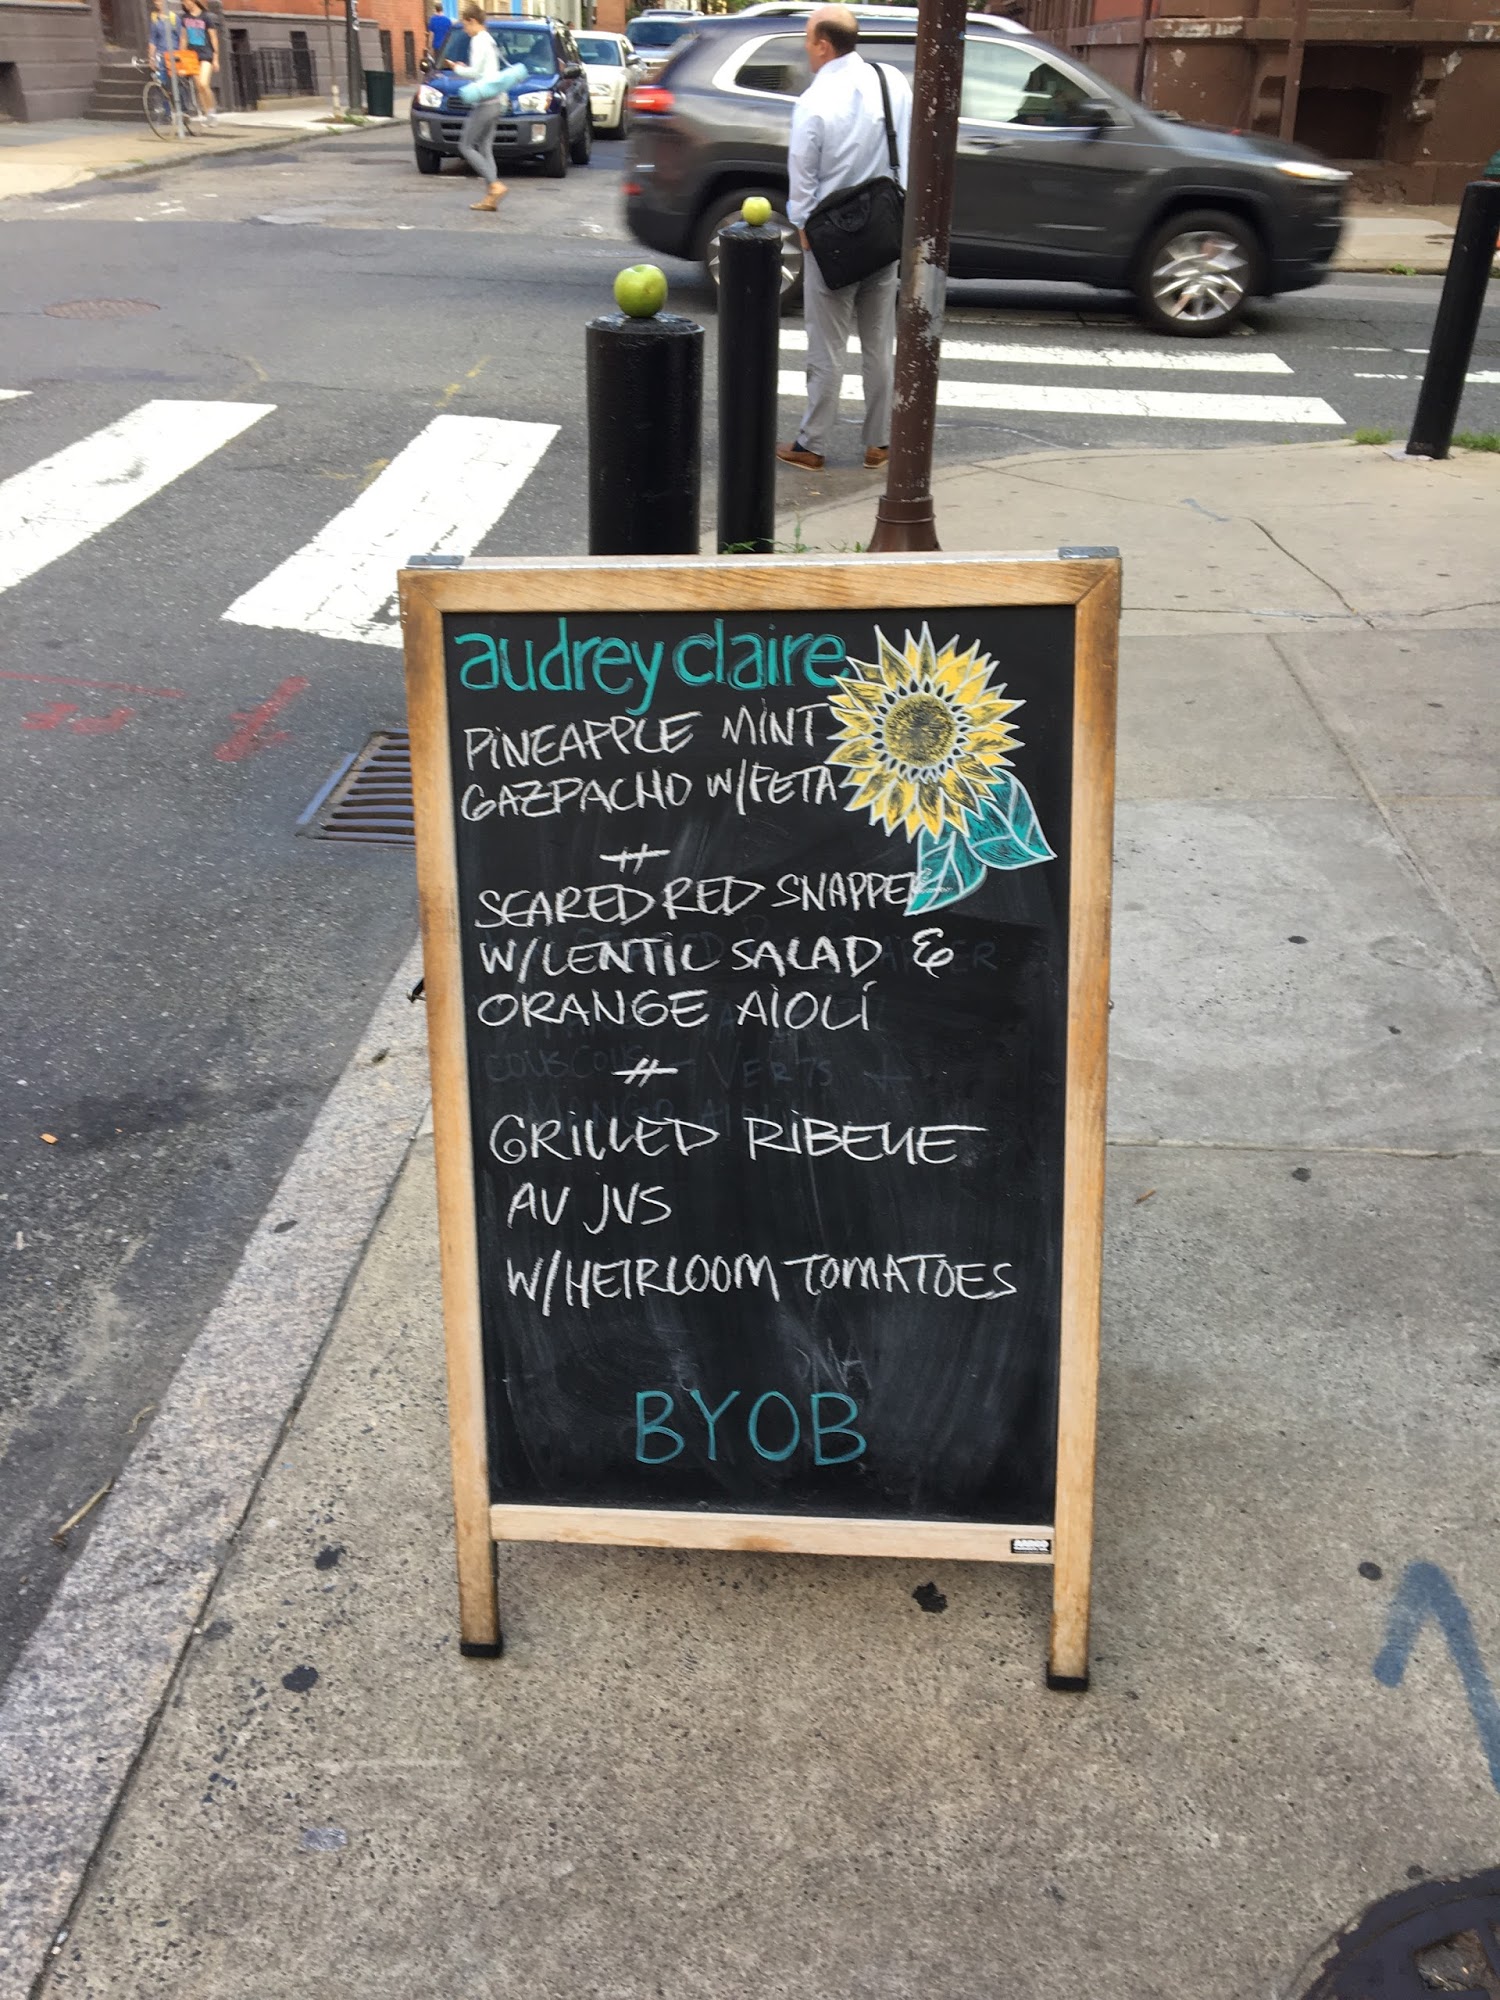 audrey claire
PINEAPPLE MINT
GAZPACHO W/FETA
SEARED RED SNAPPER
W/LENTIL SALAD &
ORANGE AIOLI
GRILLED RIBEYE
AU JUS
W/HEIRLOOM TOMATOES
BYOB